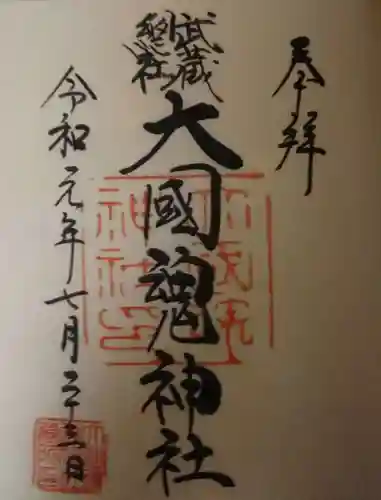 奉拝
武蔵
総社
大國魂神社
令和元年七月二十三日